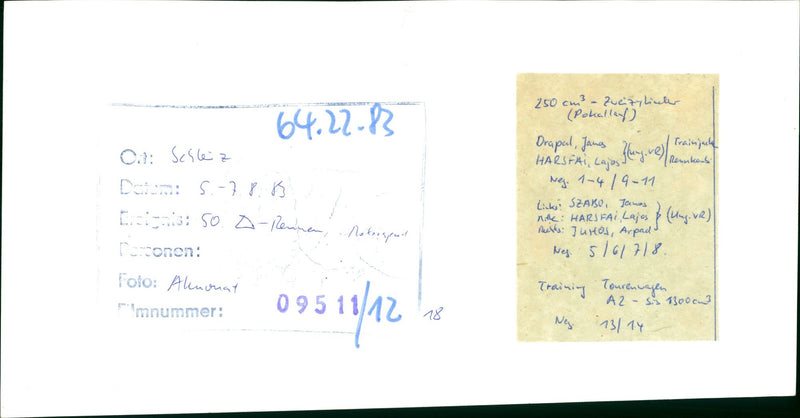 64.22.83
Ort: Schleiz
Datum: 5.-7.8.83
Ereignis: 50 Δ-Rennen, Motorsport
Personen:
Foto: Ahnert
Filmnummer: 09511/12
18
250 cm³ - Zweizylinder
(Pokallauf)
Drapal, Janos } (Ung. VR) / Trainings
HARSFAI, Lajos
Neg. 1-4 / 9-11
Links: SZABO, Janos }
Mitte: HARSFAI, Lajos } (Ung. VR)
Rechts: JUHOS, Arpad }
Neg. 5/6/7/8.
Training Tourenwagen
A2 - bis 1300 cm³
Neg. 13/14